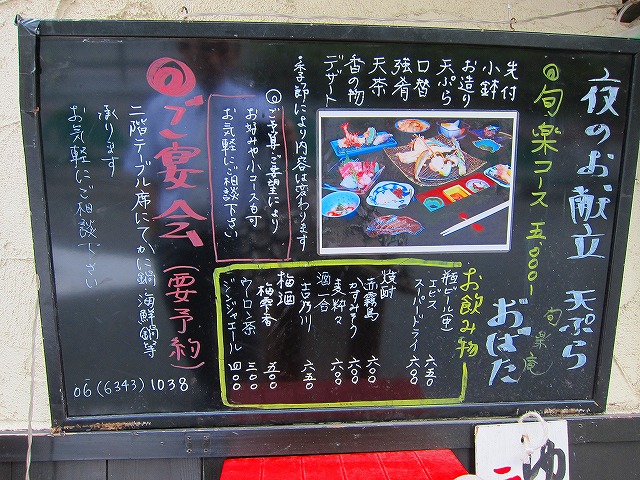 夜のお献立
天ぷら
おばた
旬楽庵
◎旬楽コース 五,000-
先付
小鉢
お造り
天ぷら
口替
強肴
天茶
香の物
デザート
季節により内容は変わります
◎ご予算・ご要望により
お好みや小コース等可
お気軽にご相談下さい
お飲み物
瓶ビール(中)
エビス 六五〇
スーパードライ 六〇〇
焼酎
赤霧島 六〇〇
かすみそう 六〇〇
麦粋々 六〇〇
酒一合
吉乃川 六五〇
梅酒
梅香 五〇〇
ウーロン茶 三〇〇
ジンジャエール 四〇〇
◎ご宴会(要予約)
二階テーブル席にてかに鍋海鮮鍋等
承ります
お気軽にご相談下さい
06(6343)1038
ゆ